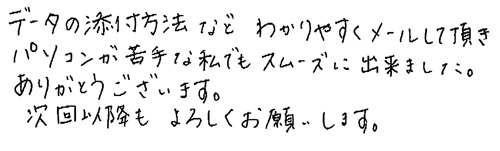 データの添付方法など わかりやすくメールして頂き
パソコンが苦手な私でも スムーズに出来ました。
ありがとうございます。
次回以降も よろしくお願いします。